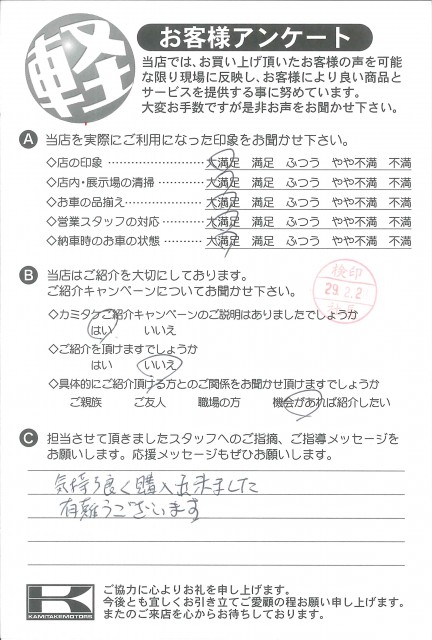 軽
お客様アンケート
当店では、お買い上げ頂いたお客様の声を可能
な限り現場に反映し、お客様により良い商品と
サービスを提供する事に努めています。
大変お手数ですが是非お声をお聞かせ下さい。
A 当店を実際にご利用になった印象をお聞かせ下さい。
◇店の印象 ………………… 大満足 満足 ふつう やや不満 不満
◇店内・展示場の清掃………… 大満足 満足 ふつう やや不満 不満
◇お車の品揃え……………… 大満足 満足 ふつう やや不満 不満
◇営業スタッフの対応………… 大満足 満足 ふつう やや不満 不満
◇納車時のお車の状態………… 大満足 満足 ふつう やや不満 不満
B 当店はご紹介を大切にしております。
ご紹介キャンペーンについてお聞かせ下さい。
検印
29.2.2
◇カミタケご紹介キャンペーンのご説明はありましたでしょうか
はい いいえ
◇ご紹介を頂けますでしょうか
はい いいえ
◇具体的にご紹介頂ける方とのご関係をお聞かせ頂けますでしょうか
ご親族 ご友人 職場の方 機会があれば紹介したい
C 担当させて頂きましたスタッフへのご指摘、ご指導メッセージを
お願いします。応援メッセージもぜひお願いします。
気持ち良く購入出来ました
有難うございます
KAMITAKEMOTORS
ご協力に心よりお礼を申し上げます。
今後とも宜しくお引き立てご愛顧の程お願い申し上げます。
またのご来店を心からお待ちしております。